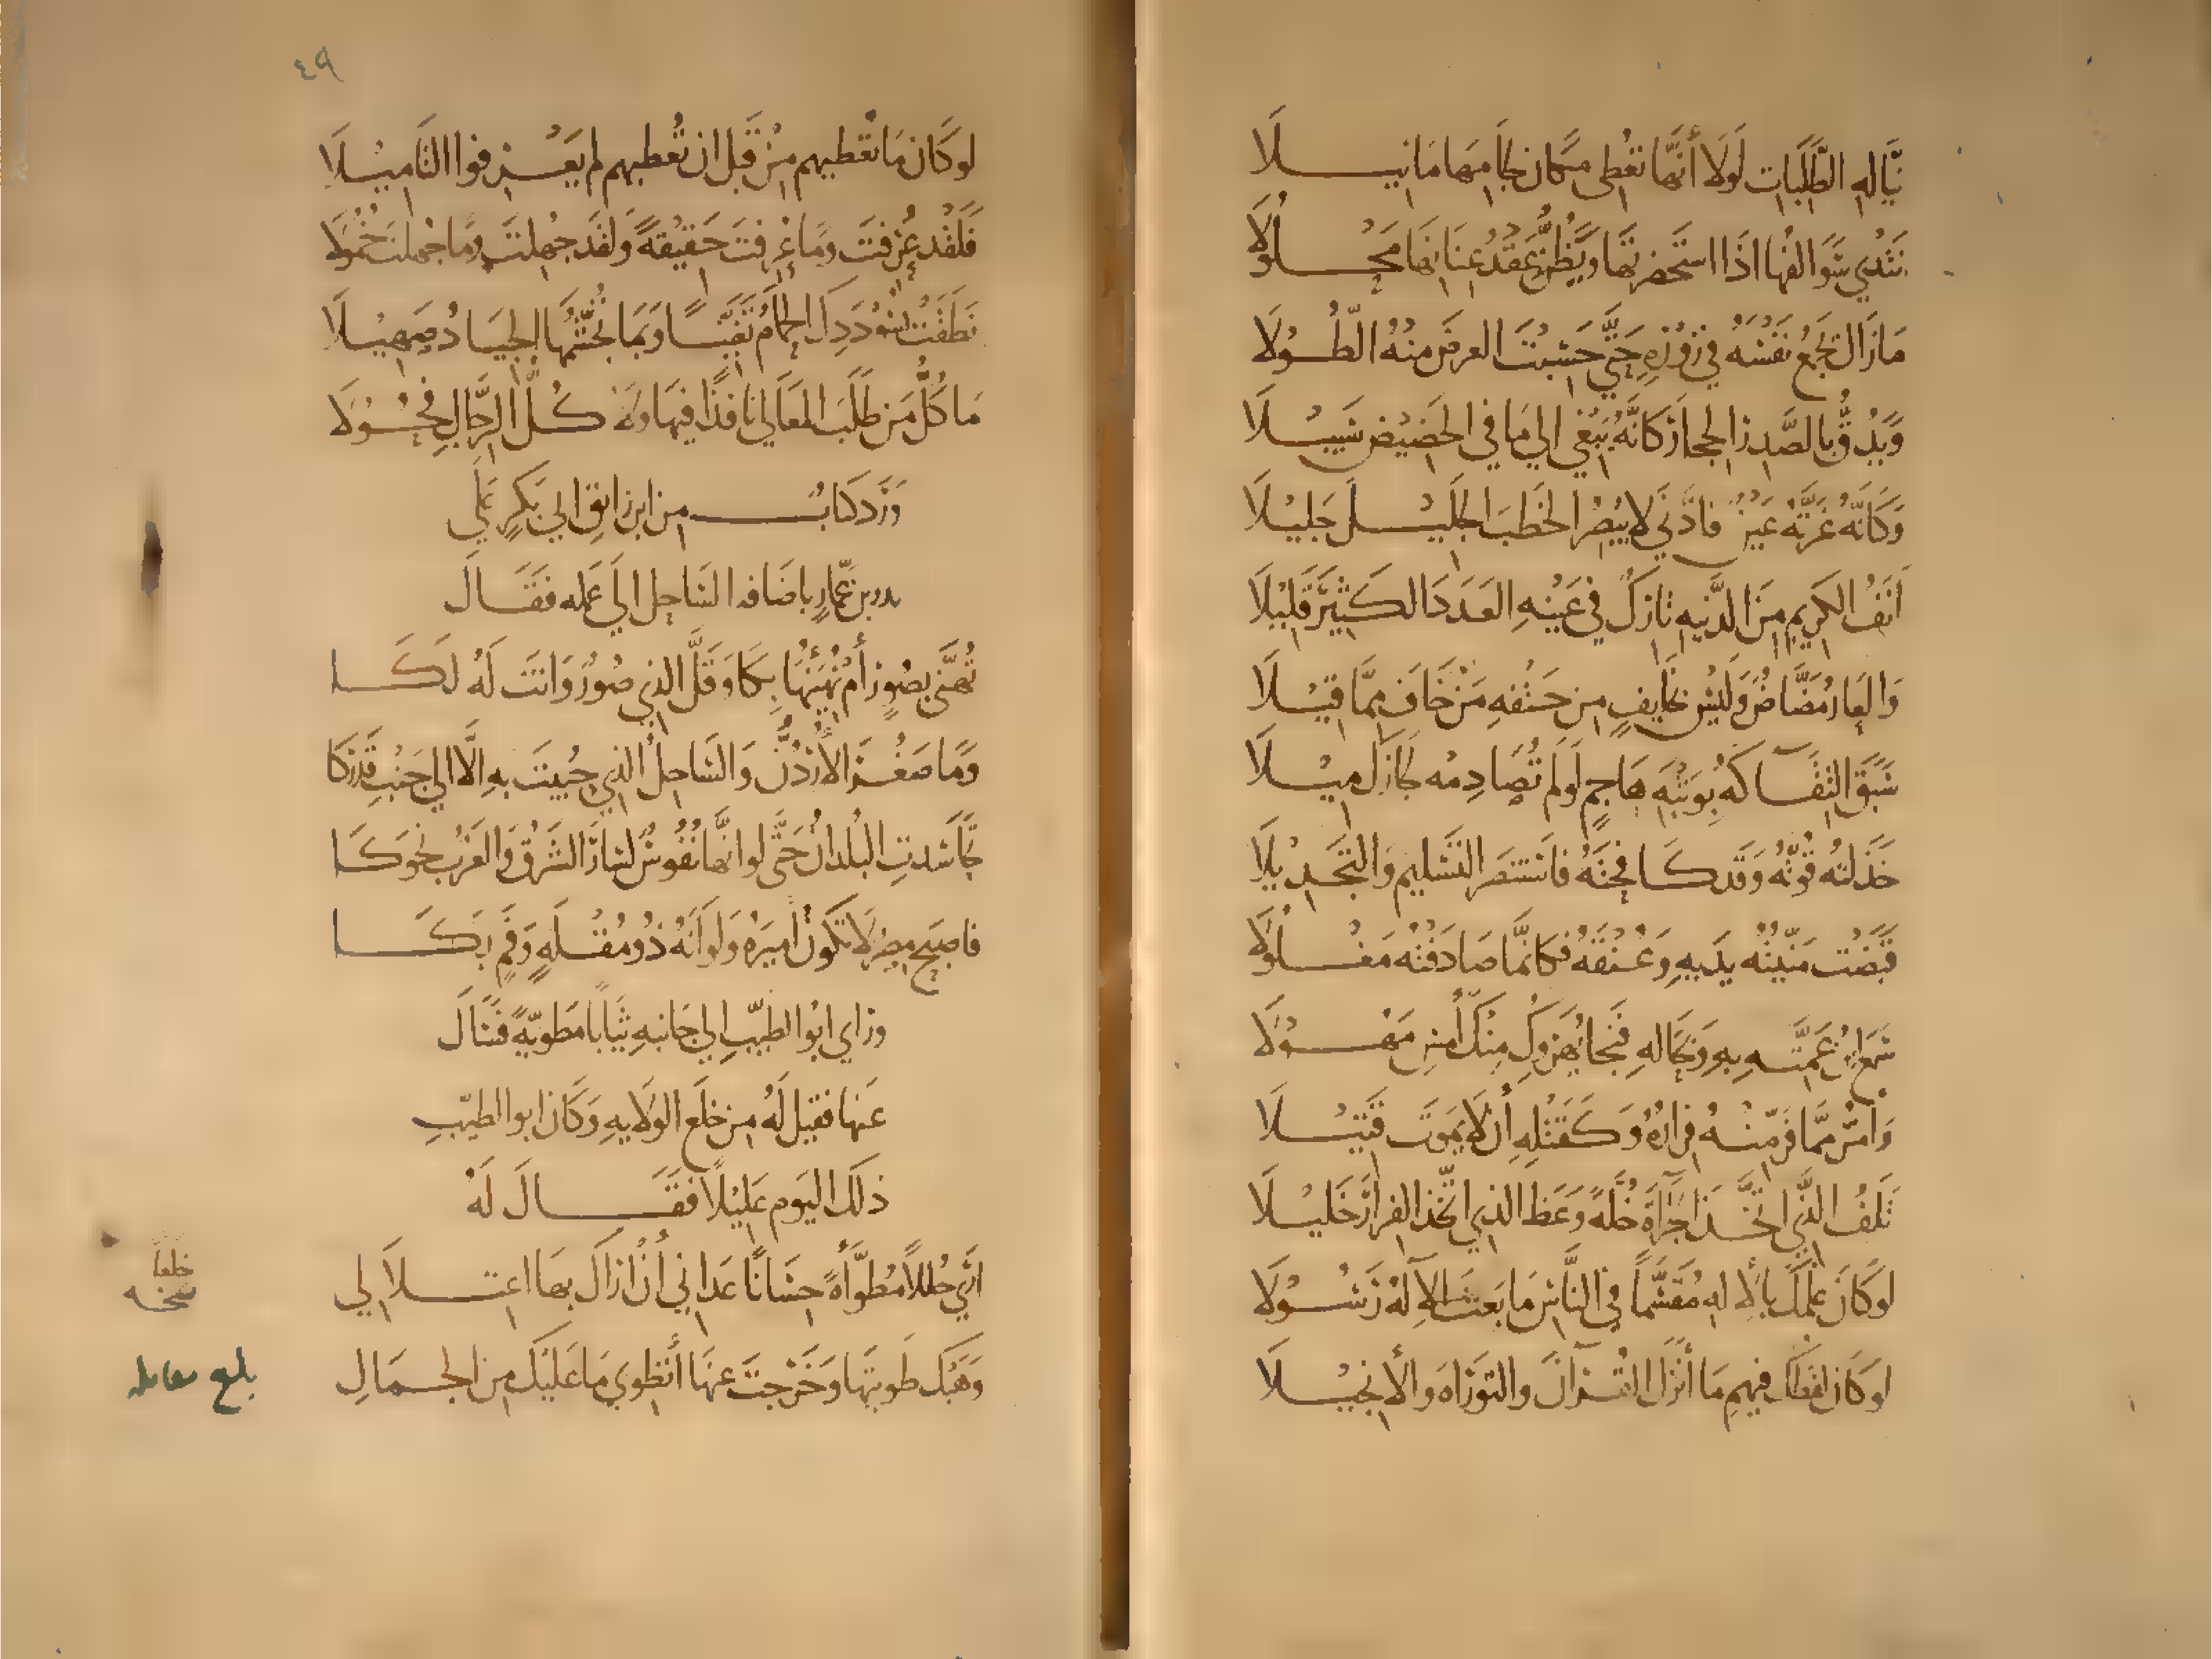 نيّالهِ الطَّلَبَاتِ لَولَا أنَّها تعُطى مكَان لجَامِهَا مَا نيــلَا
تَنْدَي سَوَالفُها اذَا استَحضَرتَها وَيُظَنُّ عَقدُ عِنَانِهَا مَحْــلُولَا
مَا زَالَ يَجمَعُ نَفْسَهُ في زَوْرِهِ حَتَّي حَسِبْتَ العرضَ مِنْهُ الطُّــولَا
وَيَدُقُّ بالصَّدرِ الحِجارَ كَانَّهُ يَبْغي الي مَا في الحَضِيْضِ سَبِيْــلَا
وَكَانَّهُ غَرَّتْهُ عَيْنٌ فادَّنَي لا يُبْصِرُ الخَطْبَ الجَليْــلَ جَليْلَا
أنَفُ الكرِيمِ مِنَ الدَّنِيهِ تَارِكٌ في عَيْنِهِ العَدَدَ الكَثِيْرَ قَلِيْلَا
وَالعَارُ مَضَّاضٌ وَلَيْسَ بخَايِفٍ مِن حَتْفِهِ مَنْ خَافَ مِمَّا قيْــلَا
سَبَقَ التِقَــاكَهُ بِوَثْبَهِ هَاجِمٍ لَو لَم تُصَادِمْه لجَازَكَ مِيْــلَا
خَذَلتْهُ قُوَّتُهُ وَقَد كَــافَحْتَهُ فاسْتَنْصَرَ التَّسْليم وَالتَّجْــدِيْلَا
قَبَضَتْ مَنِيّتُهُ يَدَيهِ وَعُــنْقَهُ فَكَانمَّا صَادَفْتُه مَغْــلُولَا
سَمِعَ ابْنُ عَمَّتِــهِ بِهِ وَبحَالهِ فَنَجا يُهَرْوِلُ مِنْكَ أمْسِ مَهُــوْلَا
وَامَرُّ مِمَّا فَرَّ مِنْــهُ فِرَارُهُ وَكَقَتْلِهِ أن لَا يَمُوتَ قَتِيْــلَا
تَلَفُ الذَّي اتَّخَــذَ الجَرَآةَ خُلَّهً وَعَظَ الذي اتّخذَ الفِرَارَ خَلِيْــلَا
لو كَانَ عِلْمُكَ بالإلهِ مُقَسَّمًا في النَّاسِ مَا بَعَثَ الآلهُ رَسُــوْلَا
لو كَانَ لفظُكَ فيهمِ مَا أنزَلَ القُــرآنَ والتورَاهَ والأنجِيْــلَا
٤٩
لو كَان مَا تُعْطيهم مِنْ قَبل ان تُعطيهم لم يَعْــرِفوا التَّامِيْــلَا
فَلَقْد عُرِفتَ وَمَا عُرِفتَ حَقِيْقهً وَلقَد جُهِلتَ وَمَا جُهلتَ خُمُولَا
نَطَقَتْ بِسُودَدِكَ الحَمَامُ تَغَنّيًــا وَبمَا تُجَشّمُهَا الجيَــادُ صَهِيْــلَا
مَا كُلُّ مَن طَلَبَ المَعَالي نَافذًا فيهَا ولَا كُــلّ الرِّجَالِ فُحُــوْلَا
وَرَدَ كتابٌــ مِن ابن رائقٍ الي بَكرٍ عَلي
بدر بن عَمّارٍ باضَافه السَاحِل الَي عَمله فَقَــالَ
تُهَنَّي بصُورٍ أمْ نُهَنّئُهَا بِكَا وَقَلَّ الذِي صُورٌ وَانتَ لَهُ لَكَــا
وَمَا صَغُــرَ الأُرْدُنُّ وَالسَاحلُ الذِي حُبِيتَ بهِ الَّا الي جَنْبِ قَدْرِكَا
تحَاسَدتِ البُلدانُ حَتَّي لو انَّها نُفُوسٌ لسَارَ الشَرْقُ وَالغَرْبُ نَحْوَكَــا
فاصبَح مِصرٌ لَا تَكُونُ امِيرَهُ وَلَو أنّهُ ذُو مُقْــلَهٍ وَفَمٍ بَكَــا
وراي ابُوا الطيّبِ الي جَانبهِ ثيَابًا مَطويّهً فَسَالَ
عَنها فقيل لَهُ مِن خلَع الوَلَايهِ وَكَانَ ابوا الطيّبِ
ذلكَ اليَوم عَلِيْلًا فَقَــالَ لَهُ
ارَي حُللًا مُطوَّأهً حِسَانًا عَدَاني أنْ ارَاكَ بهَا اعتــلَا لي
وَهَبْكَ طوَيتَهَا وَخَرَجتَ عنهَا أتَطوي مَا عَليْكَ مِنَ الجــمَالِ
خلعاً
نسخه
بلغ مقابله